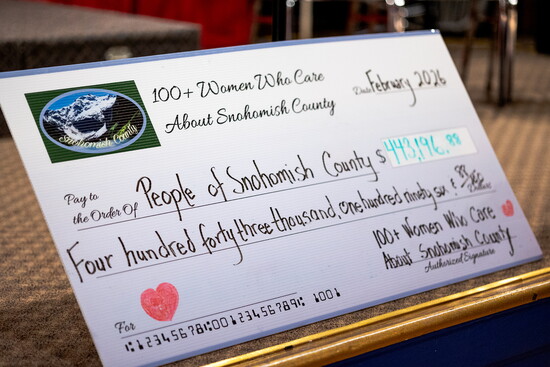 100+ Women Who Care
About Snohomish County
Date February 2026
Snohomish County
Pay to
the Order Of People of Snohomish County $ 443,196.88
Four hundred forty three thousand, one hundred ninety six & 88/100 Dollars
100+ Women Who Care
About Snohomish County
Authorized Signature
For
⑆12345678⑆00123456789⑆ 1001